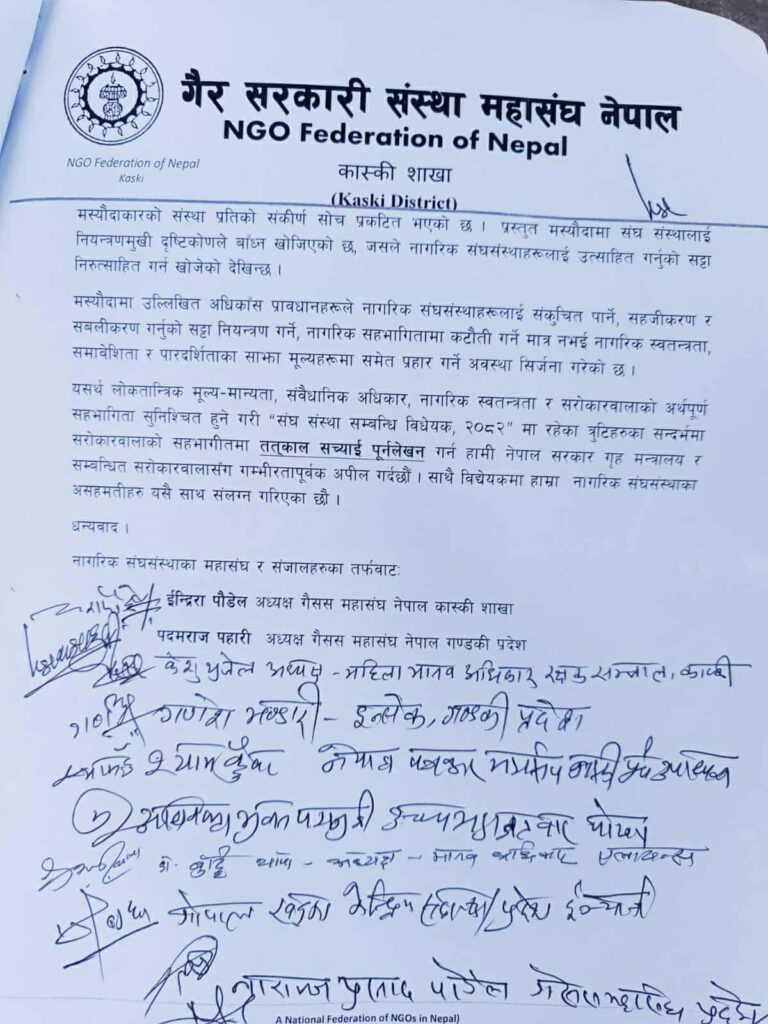 गैर सरकारी संस्था महासंघ नेपाल
NGO Federation of Nepal
NGO Federation of Nepal
Kaski
कास्की शाखा
(Kaski District)
मस्यौदाकारको संस्था प्रतिको संकीर्ण सोच प्रकटित भएको छ । प्रस्तुत मस्यौदामा संघ संस्थालाई
नियन्त्रणमुखी दृष्टिकोणले बाँध्न खोजिएको छ, जसले नागरिक संघसंस्थाहरूलाई उत्साहित गर्नुको सट्टा
निरुत्साहित गर्न खोजेको देखिन्छ ।
मस्यौदामा उल्लिखित अधिकाँस प्रावधानहरूले नागरिक संघसंस्थाहरूलाई संकुचित पार्ने, सहजीकरण र
सबलीकरण गर्नुको सट्टा नियन्त्रण गर्ने, नागरिक सहभागितामा कटौती गर्ने मात्र नभई नागरिक स्वतन्त्रता,
समावेशिता र पारदर्शिताका साझा मूल्यहरूमा समेत प्रहार गर्ने अवस्था सिर्जना गरेको छ ।
यसर्थ लोकतान्त्रिक मूल्य-मान्यता, संवैधानिक अधिकार, नागरिक स्वतन्त्रता र सरोकारवालाको अर्थपूर्ण
सहभागिता सुनिश्चित हुने गरी “संघ संस्था सम्बन्धि विधेयक, २०८२” मा रहेका त्रुटिहरुका सन्दर्भमा
सरोकारवालाको सहभागीतमा तत्काल सच्याई पूर्नलेखन गर्न हामी नेपाल सरकार गृह मन्त्रालय र
सम्बन्धित सरोकारवालासँग गम्भीरतापूर्वक अपील गर्दछौं । साथै विद्येयकमा हाम्रा नागरिक संघसंस्थाका
असहमतीहरु यसै साथ संलग्न गरिएका छौ ।
धन्यवाद ।
नागरिक संघसंस्थाका महासंघ र संजालहरुका तर्फवाटः
ईन्द्रिरा पौडेल अध्यक्ष गैसस महासंघ नेपाल कास्की शाखा
पदमराज पहारी अध्यक्ष गैसस महासंघ नेपाल गण्डकी प्रदेश
केशु अध्यक्ष - महिला मानव अधिकार रक्षक सञ्जाल, कास्की
गणेश भण्डारी - इन्सेक, गण्डकी प्रदेश
श्याम नेपाल पत्रकार कास्की
थापा - अध्यक्ष - मानव अधिकार एलाइन्स
गोपाल
प्रसाद पौडेल
A National Federation of NGOs in Nepal)